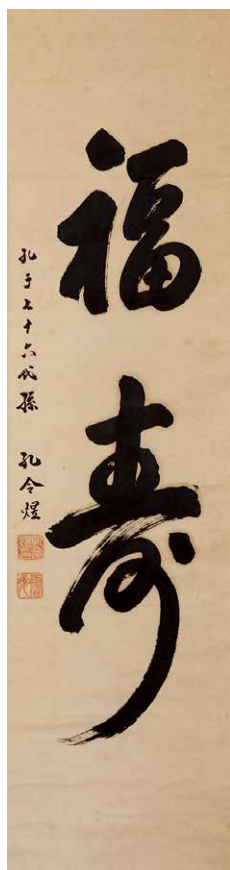 福寿
孔子七十六代孫 孔令煜